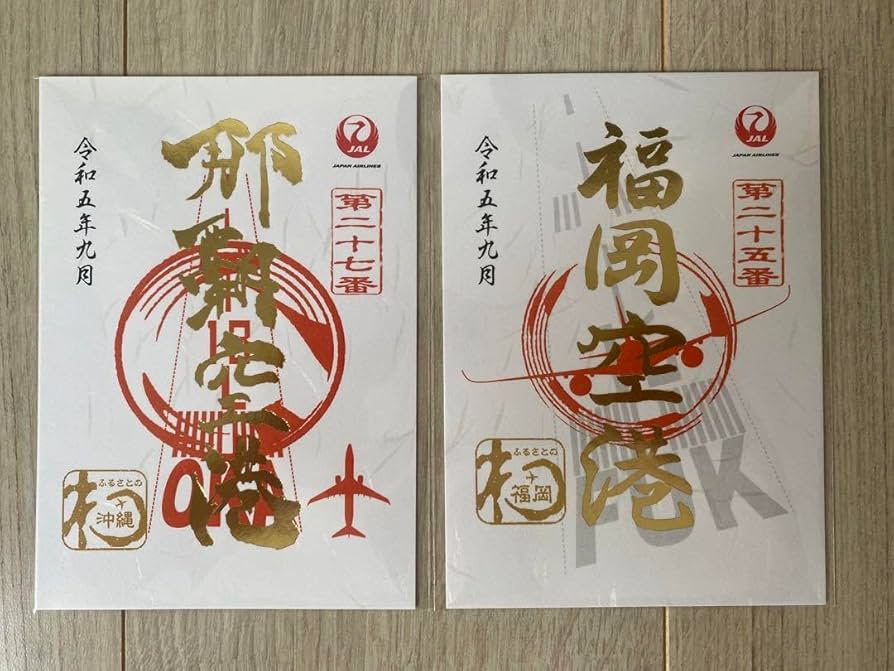 那覇空港
令和五年九月
JAL
JAPAN AIRLINES
第二十七番
OKA
ふるさとの
沖縄
福岡空港
令和五年九月
JAL
JAPAN AIRLINES
第二十五番
FUK
ふるさとの
福岡